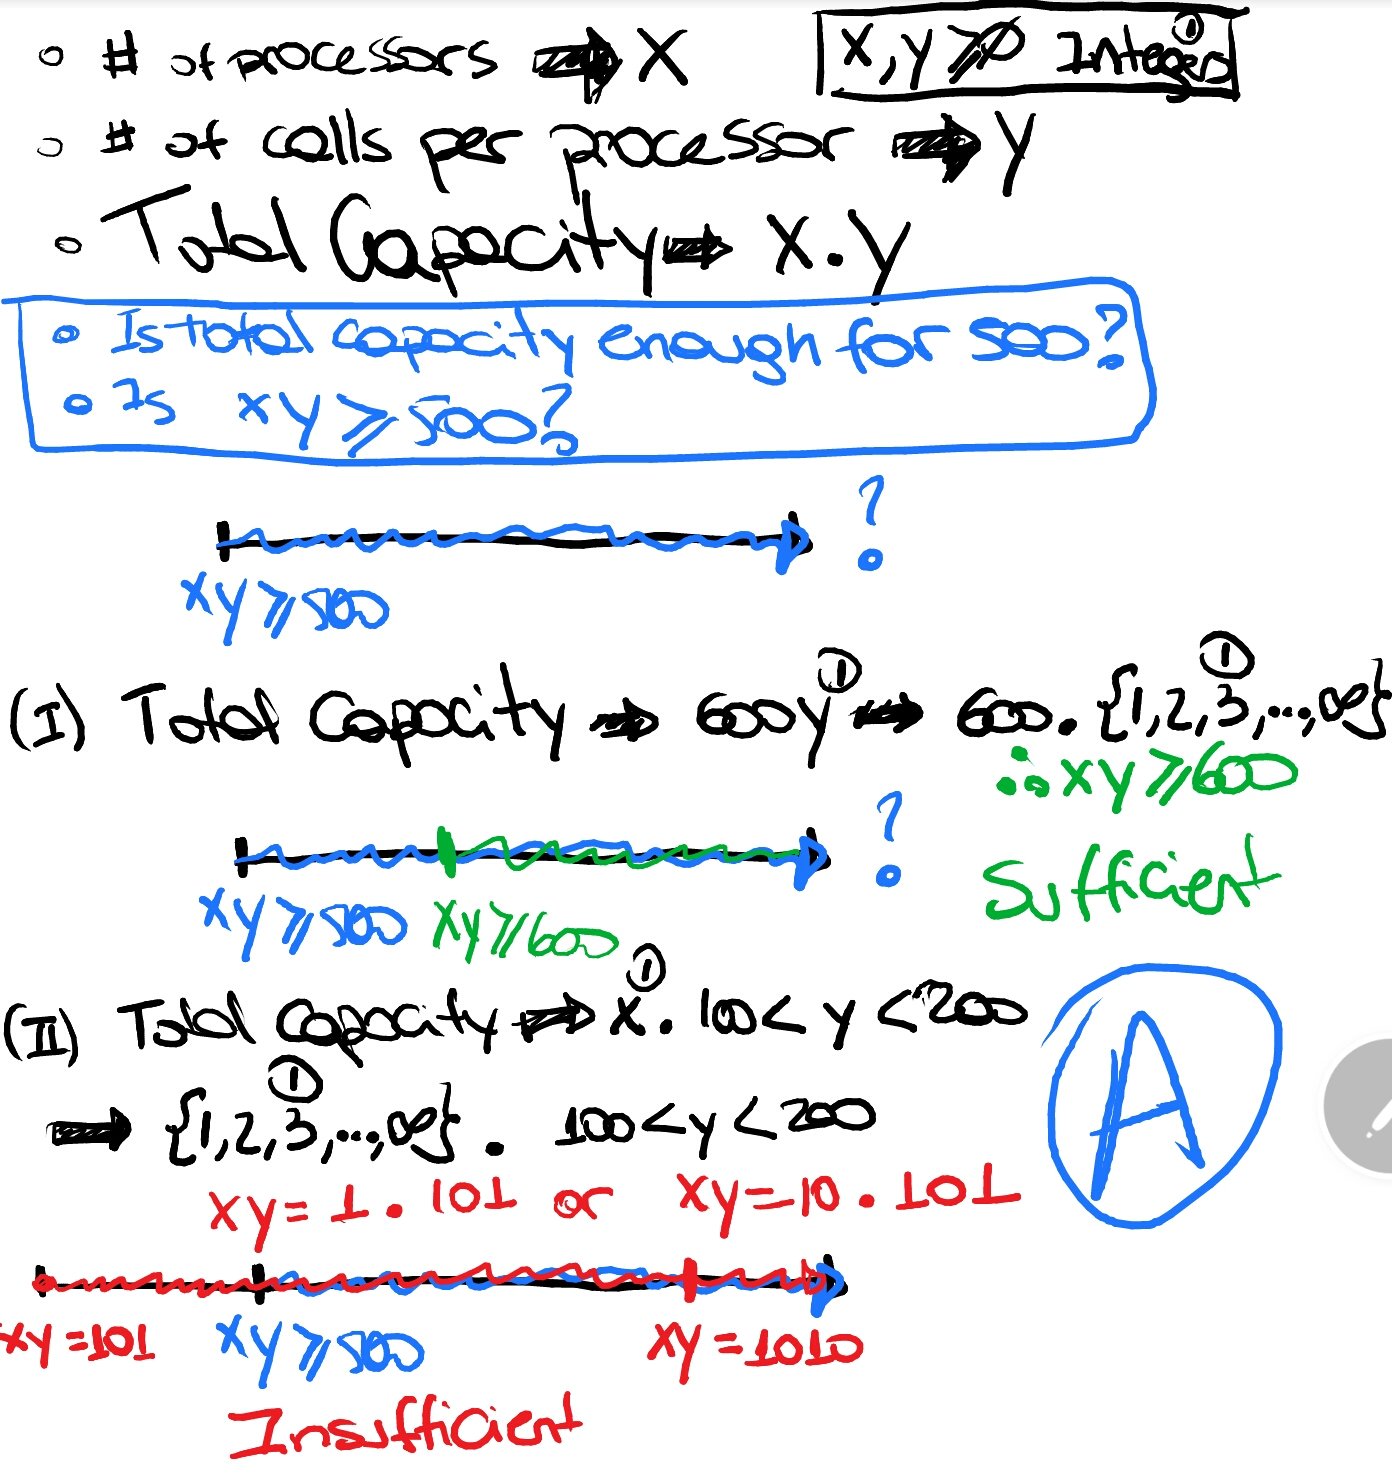 # of processors ⇒ X
X, y > 0 Integers ①
# of calls per processor ⇒ y
Total Capacity ⇒ X.y
Is total capacity enough for 500?
Is xy ≥ 500?
?
xy ≥ 500
(I) Total Capacity ⇒ 600y ① ⇒ 600. {1,2,3,...,∞} ①
∴ xy ≥ 600
?
Sufficient
xy ≥ 500 xy ≥ 600
(II) Total Capacity ⇒ x ① . 100 < y < 200
⇒ {1,2,3,...,∞} ① . 100 < y < 200
A
xy = 1 . 101 or xy = 10 . 101
xy = 101 xy ≥ 500 xy = 1010
Insufficient